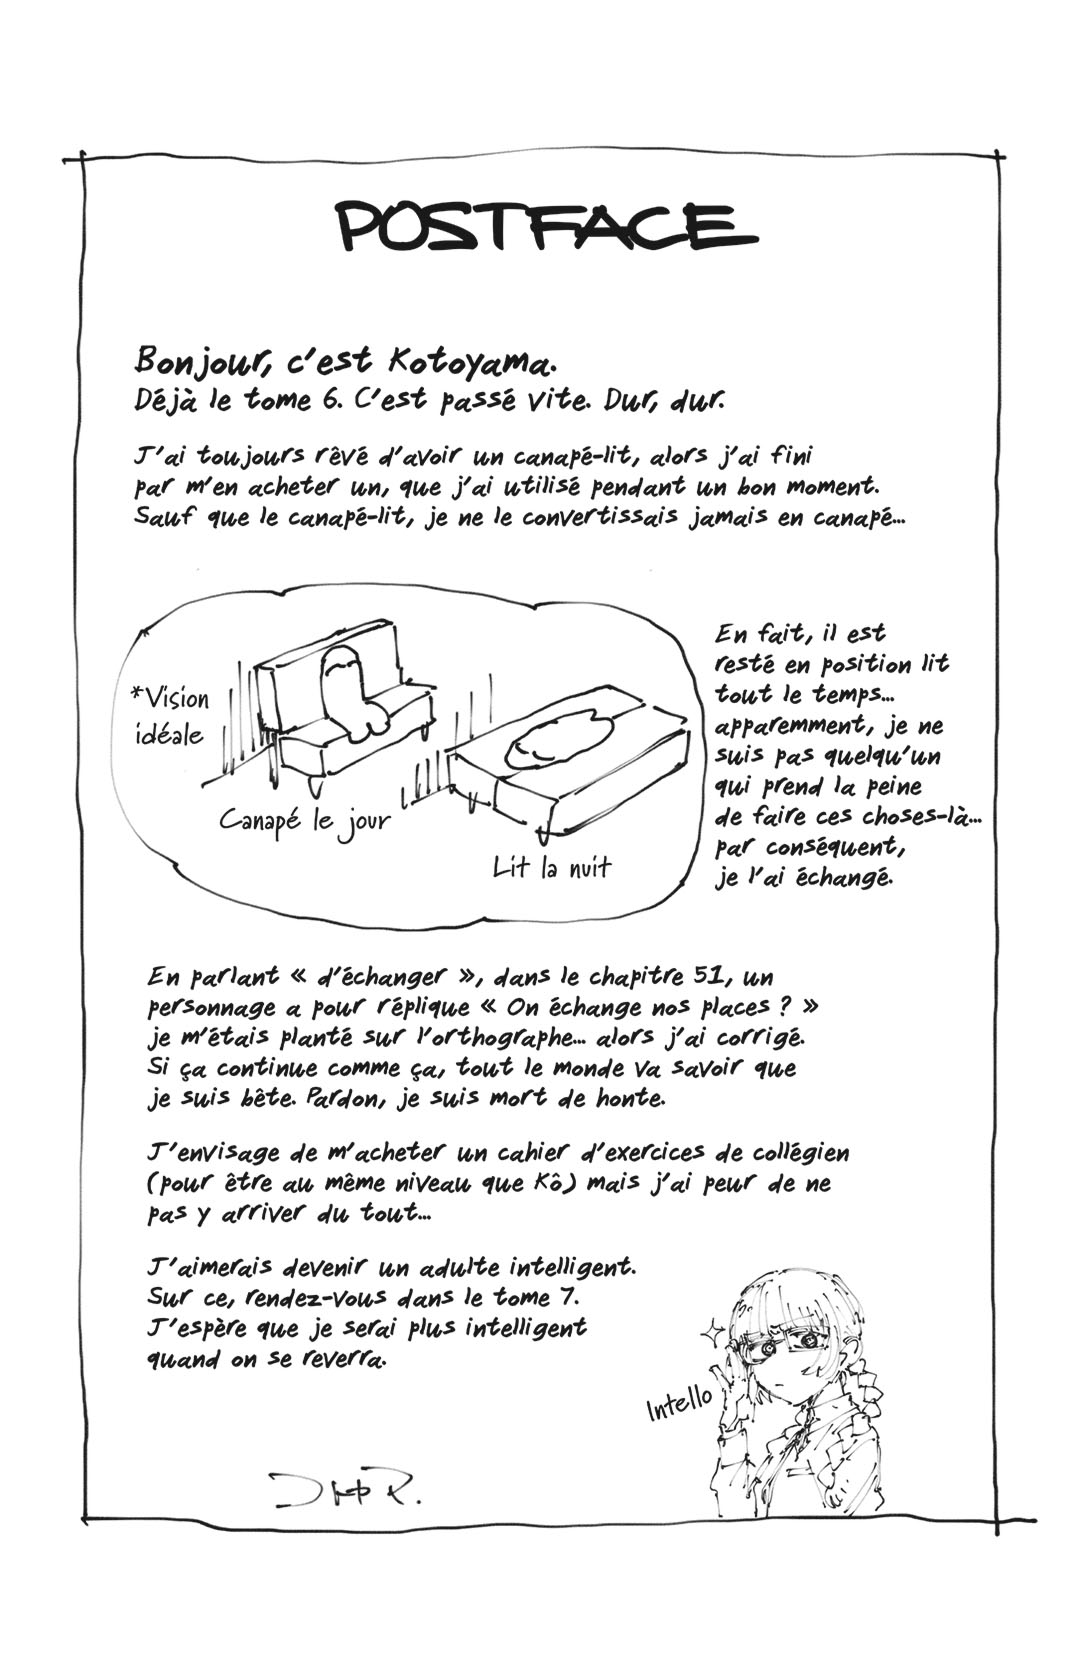 POSTFACE
Bonjour, c'est Kotoyama.
Déjà le tome 6. C'est passé vite. Dur, dur.
J'ai toujours rêvé d'avoir un canapé-lit, alors j'ai fini
par m'en acheter un, que j'ai utilisé pendant un bon moment.
Sauf que le canapé-lit, je ne le convertissais jamais en canapé...
*Vision
idéale
Canapé le jour
Lit la nuit
En fait, il est
resté en position lit
tout le temps...
apparemment, je ne
suis pas quelqu'un
qui prend la peine
de faire ces choses-là...
par conséquent,
je l'ai échangé.
En parlant « d'échanger », dans le chapitre 51, un
personnage a pour réplique « On échange nos places ? »
je m'étais planté sur l'orthographe... alors j'ai corrigé.
Si ça continue comme ça, tout le monde va savoir que
je suis bête. Pardon, je suis mort de honte.
J'envisage de m'acheter un cahier d'exercices de collégien
(pour être au même niveau que Kô) mais j'ai peur de ne
pas y arriver du tout...
J'aimerais devenir un adulte intelligent.
Sur ce, rendez-vous dans le tome 7.
J'espère que je serai plus intelligent
quand on se reverra.
Intello